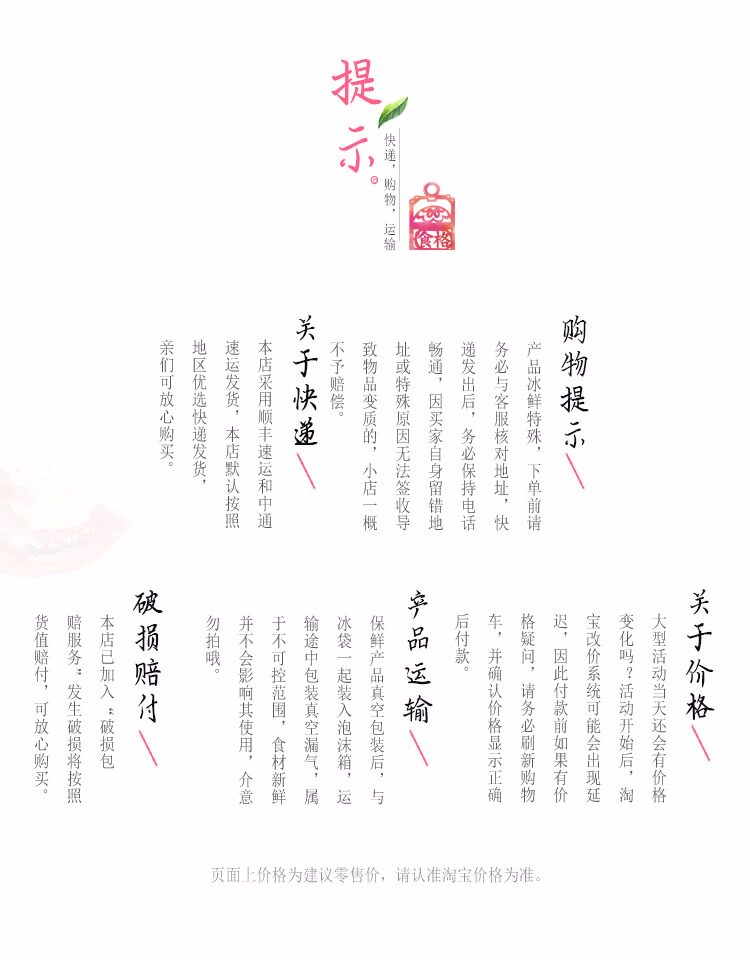 提示。
快递，购物，运输
食格
购物提示
产品冰鲜特殊，下单前请
务必与客服核对地址，快
递发出后，务必保持电话
畅通，因买家自身留错地
址或特殊原因无法签收导
致物品变质的，小店一概
不予赔偿。
关于快递
本店采用顺丰速运和中通
速运发货，本店默认按照
地区优选快递发货，
亲们可放心购买。
关于价格
大型活动当天还会有价格
变化吗？活动开始后，淘
宝改价系统可能会出现延
迟，因此付款前如果有价
格疑问，请务必刷新购物
车，并确认价格显示正确
后付款。
产品运输
保鲜产品真空包装后，与
冰袋一起装入泡沫箱，运
输途中包装真空漏气，属
于不可控范围，食材新鲜
并不会影响其使用，介意
勿拍哦。
破损赔付
本店已加入“破损包
赔服务”发生破损将按照
货值赔付，可放心购买。
页面上价格为建议零售价，请认准淘宝价格为准。